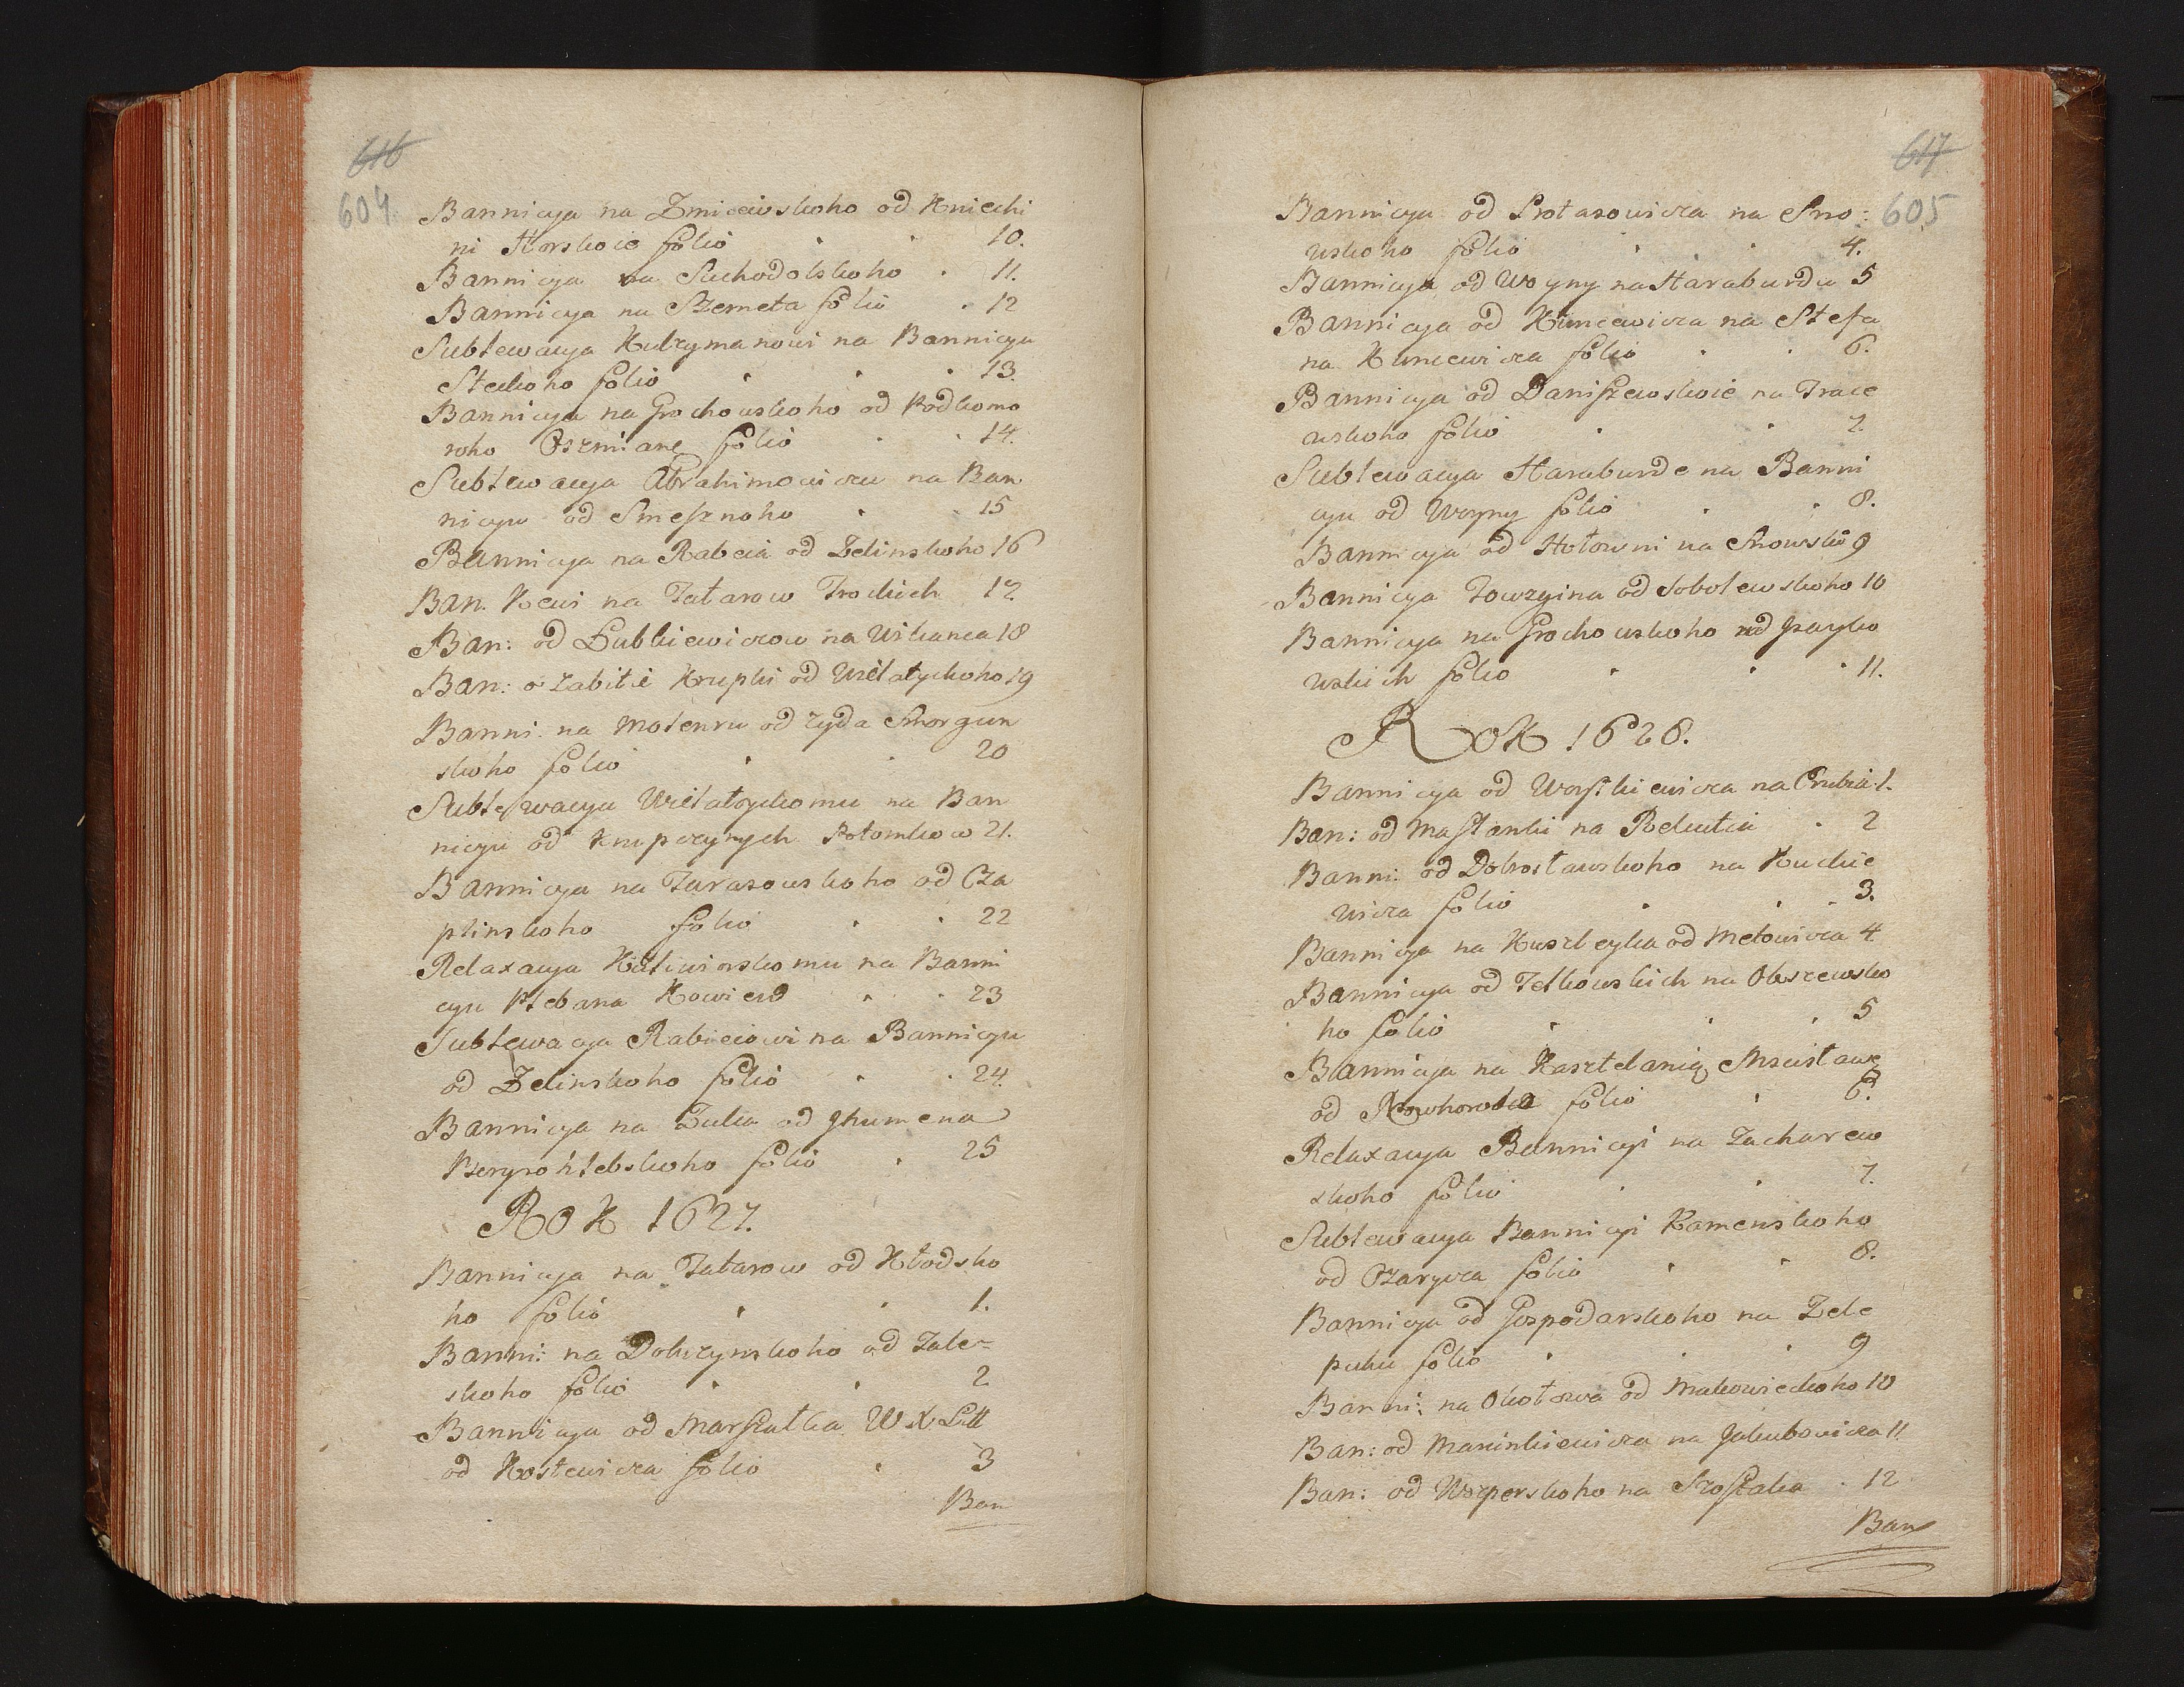 616
604.
Bannicya na Zmicewskoho od Kniechi
ni Horskoie folio 10.
Bannicya na Suchodolskoho 11.
Bannicya na Szemeta folio 12
Sublewacya Kulzymanowi na Bannicyu
Steckoho folio 13.
Bannicya na Grochowskoho od Podkomo
roho Oszmiane folio 14.
Sublewacya Abrahimowiczu na Ban
nicyu od Smesznoho 15
Bannicya na Rabeia od Zelinskoho 16
Ban. Kocui na Tatarow Trockich 17
Ban: od Lubkiewiczow na Wilkanca 18
Ban: o zabitie Krupki od Wiłatyckoho 19
Banni. na Motenru od zyda Smorgun
skoho folio 20
Sublewacya Wiłatyckomu na Ban
nicyu od Krupczynych Potomkow 21.
Bannicya na Tarasowskoho od Cza
plinskoho folio 22
Relaxacya Kutiwinskomu na Banni
cyu Plebana Kowiens 23
Sublewacya Rabieiowi na Bannicyu
od Zelinskoho folio 24.
Bannicya na Zuka od Jhumena
Pieryrohlebskoho folio 25
ROK 1627.
Bannicya na Tatarow od Kłodsko
ho folio 1.
Banni: na Dobrzynskoho od Zale-
skoho folio 2
Bannicya od Marszałka W X Litt
od Kostewicza folio 3
Ban
617
605
Bannicya od Protasowicza na Sno:
wskoho folio 4.
Bannicya od Woyny na Haraburdu 5
Bannicya od Kuncewicza na Stefa
na Kuncewicza folio 6.
Bannicya od Daniszewskoie na Trace
wskoho folio 7.
Sublewacya Haraburde na Banni
cyu od Woyny folio 8.
Bannicya od Hołowni na Snowsko 9
Bannicya Towzgina od Sobolewskoho 10
Bannicya na Grochowskoho od Jzayko
wskich folio 11.
ROK 1628.
Bannicya od Woysztkiewicza na Crubia 1.
Ban: od Masztanki na Rekutia 2
Banni: od Dobrosławskoho na Kuckie
wicza folio 3.
Bannicya na Kuszleyka od Metowicza 4
Bannicya od Tetkowskich na Olszewsko
ho folio 5
Bannicya na Kasztelanię Mscisławę
od Nowhoroda folio 6.
Relaxacya Bannicyi na Zacharew
skoho folio 7.
Sublewacya Bannicyi Kamenskoho
od Ozarycza folio 8.
Bannicya od Gospodarskoho na Zele
puhu folio 9
Banni: na Okołowa od Makowieckoho 10
Ban: od Marcinkiewicza na Jakubowicza 11.
Ban: od Wozperskoho na Szosztaka 12
Ban